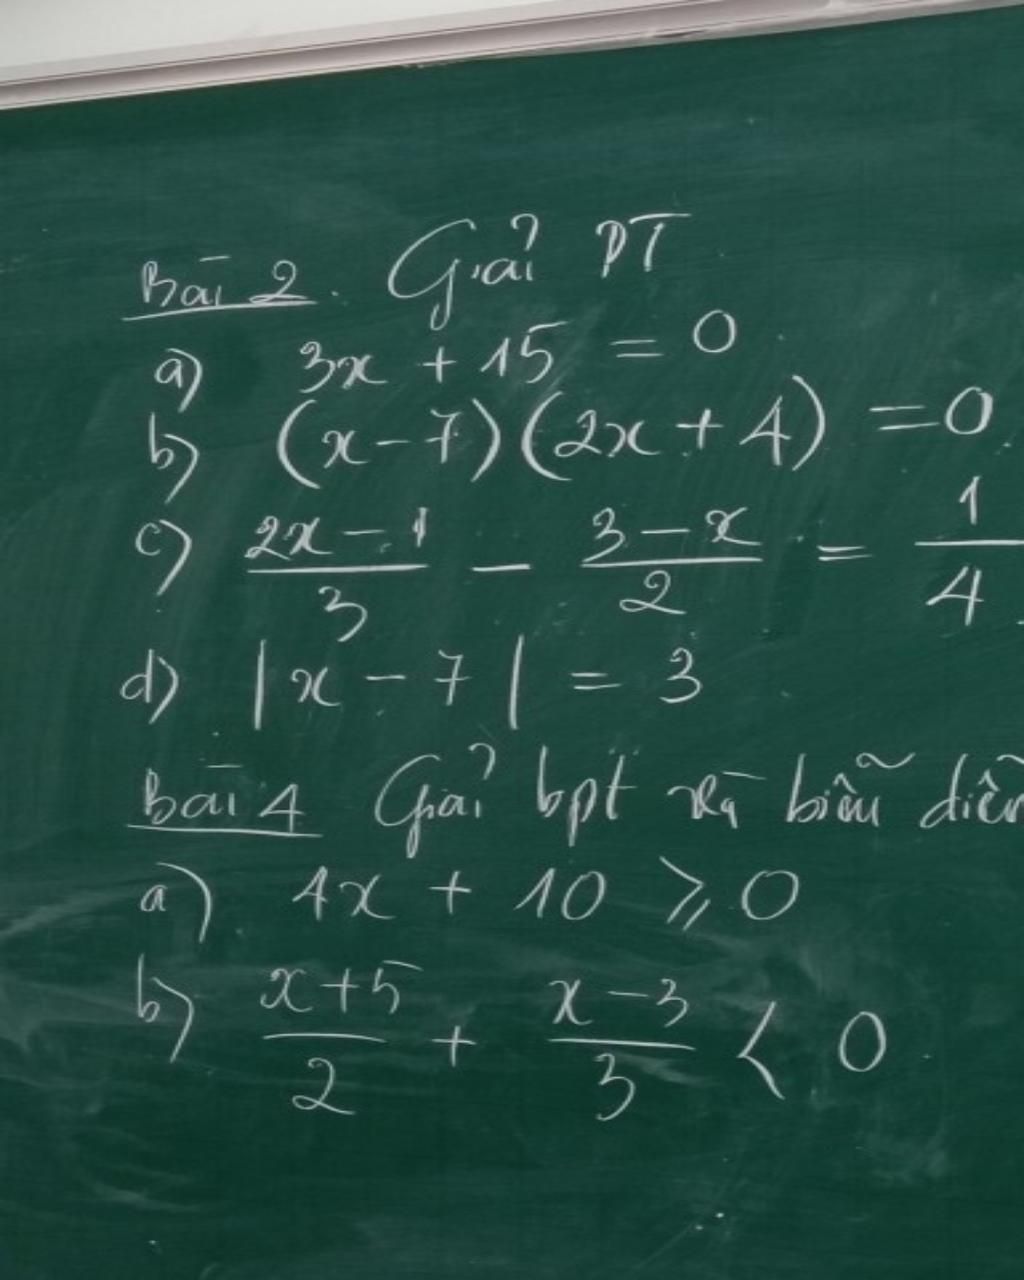 Bài 2. Giải PT
a) 3x + 15 = 0
b) (x - 7)(2x + 4) = 0
c) \frac{2x - 1}{3} - \frac{3 - x}{2} = \frac{1}{4}
d) |x - 7| = 3
Bài 4 Giải bpt và biễu diễn
a) 4x + 10 ⩾ 0
b) \frac{x + 5}{2} + \frac{x - 3}{3} < 0